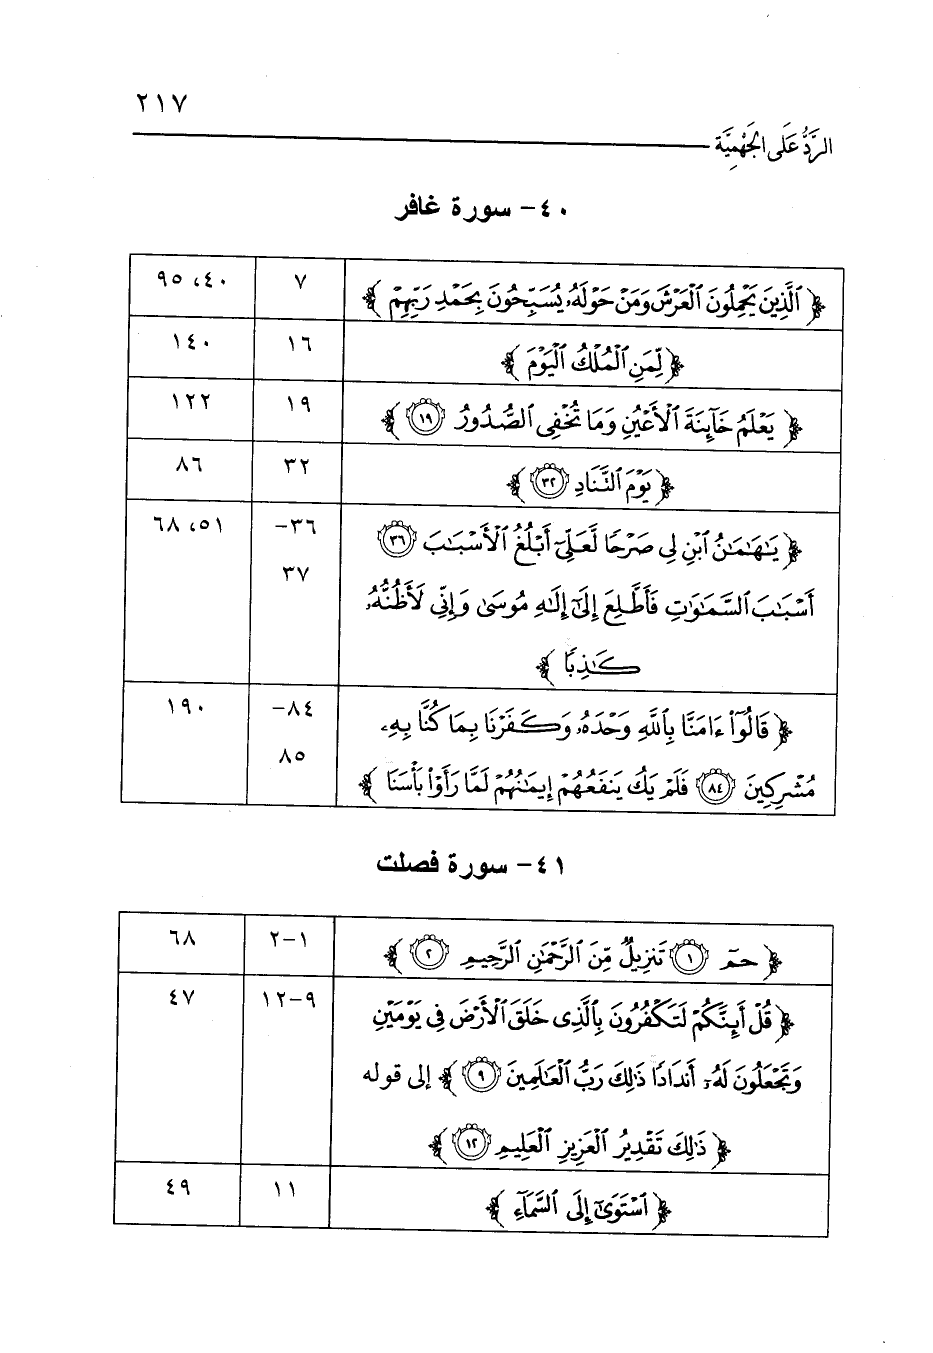 ٢١٧
الرَّدُّ عَلَى الجَهْمِيَّة
٤٠- سورة غافر
﴿ٱلَّذِينَ يَحۡمِلُونَ ٱلۡعَرۡشَ وَمَنۡ حَوۡلَهُۥ يُسَبِّحُونَ بِحَمۡدِ رَبِّهِمۡ﴾ ٧ ٤٠، ٩٥
﴿لِّمَنِ ٱلۡمُلۡكُ ٱلۡيَوۡمَ﴾ ١٦ ١٤٠
﴿يَعۡلَمُ خَآئِنَةَ ٱلۡأَعۡيُنِ وَمَا تُخۡفِي ٱلصُّدُورُ ١٩﴾ ١٩ ١٢٢
﴿يَوۡمَ ٱلتَّنَادِ ٣٢﴾ ٣٢ ٨٦
﴿يَٰهَٰمَٰنُ ٱبۡنِ لِي صَرۡحٗا لَّعَلِّيٓ أَبۡلُغُ ٱلۡأَسۡبَٰبَ ٣٦ ٣٦- ٥١، ٦٨
أَسۡبَٰبَ ٱلسَّمَٰوَٰتِ فَأَطَّلِعَ إِلَىٰٓ إِلَٰهِ مُوسَىٰ وَإِنِّي لَأَظُنُّهُۥ ٣٧
كَٰذِبٗا﴾
﴿قَالُوٓاْ ءَامَنَّا بِٱللَّهِ وَحۡدَهُۥ وَكَفَرۡنَا بِمَا كُنَّا بِهِۦ ٨٤- ١٩٠
مُشۡرِكِينَ ٨٤ فَلَمۡ يَكُ يَنفَعُهُمۡ إِيمَٰنُهُمۡ لَمَّا رَأَوۡاْ بَأۡسَنَا﴾ ٨٥
٤١- سورة فصلت
﴿حمٓ ١ تَنزِيلٞ مِّنَ ٱلرَّحۡمَٰنِ ٱلرَّحِيمِ ٢﴾ ١-٢ ٦٨
﴿قُلۡ أَئِنَّكُمۡ لَتَكۡفُرُونَ بِٱلَّذِي خَلَقَ ٱلۡأَرۡضَ فِي يَوۡمَيۡنِ ٩-١٢ ٤٧
وَتَجۡعَلُونَ لَهُۥٓ أَندَادٗا ذَٰلِكَ رَبُّ ٱلۡعَٰلَمِينَ ٩﴾ إلى قوله
﴿ذَٰلِكَ تَقۡدِيرُ ٱلۡعَزِيزِ ٱلۡعَلِيمِ ١٢﴾
﴿ٱسۡتَوَىٰٓ إِلَى ٱلسَّمَآءِ﴾ ١١ ٤٩